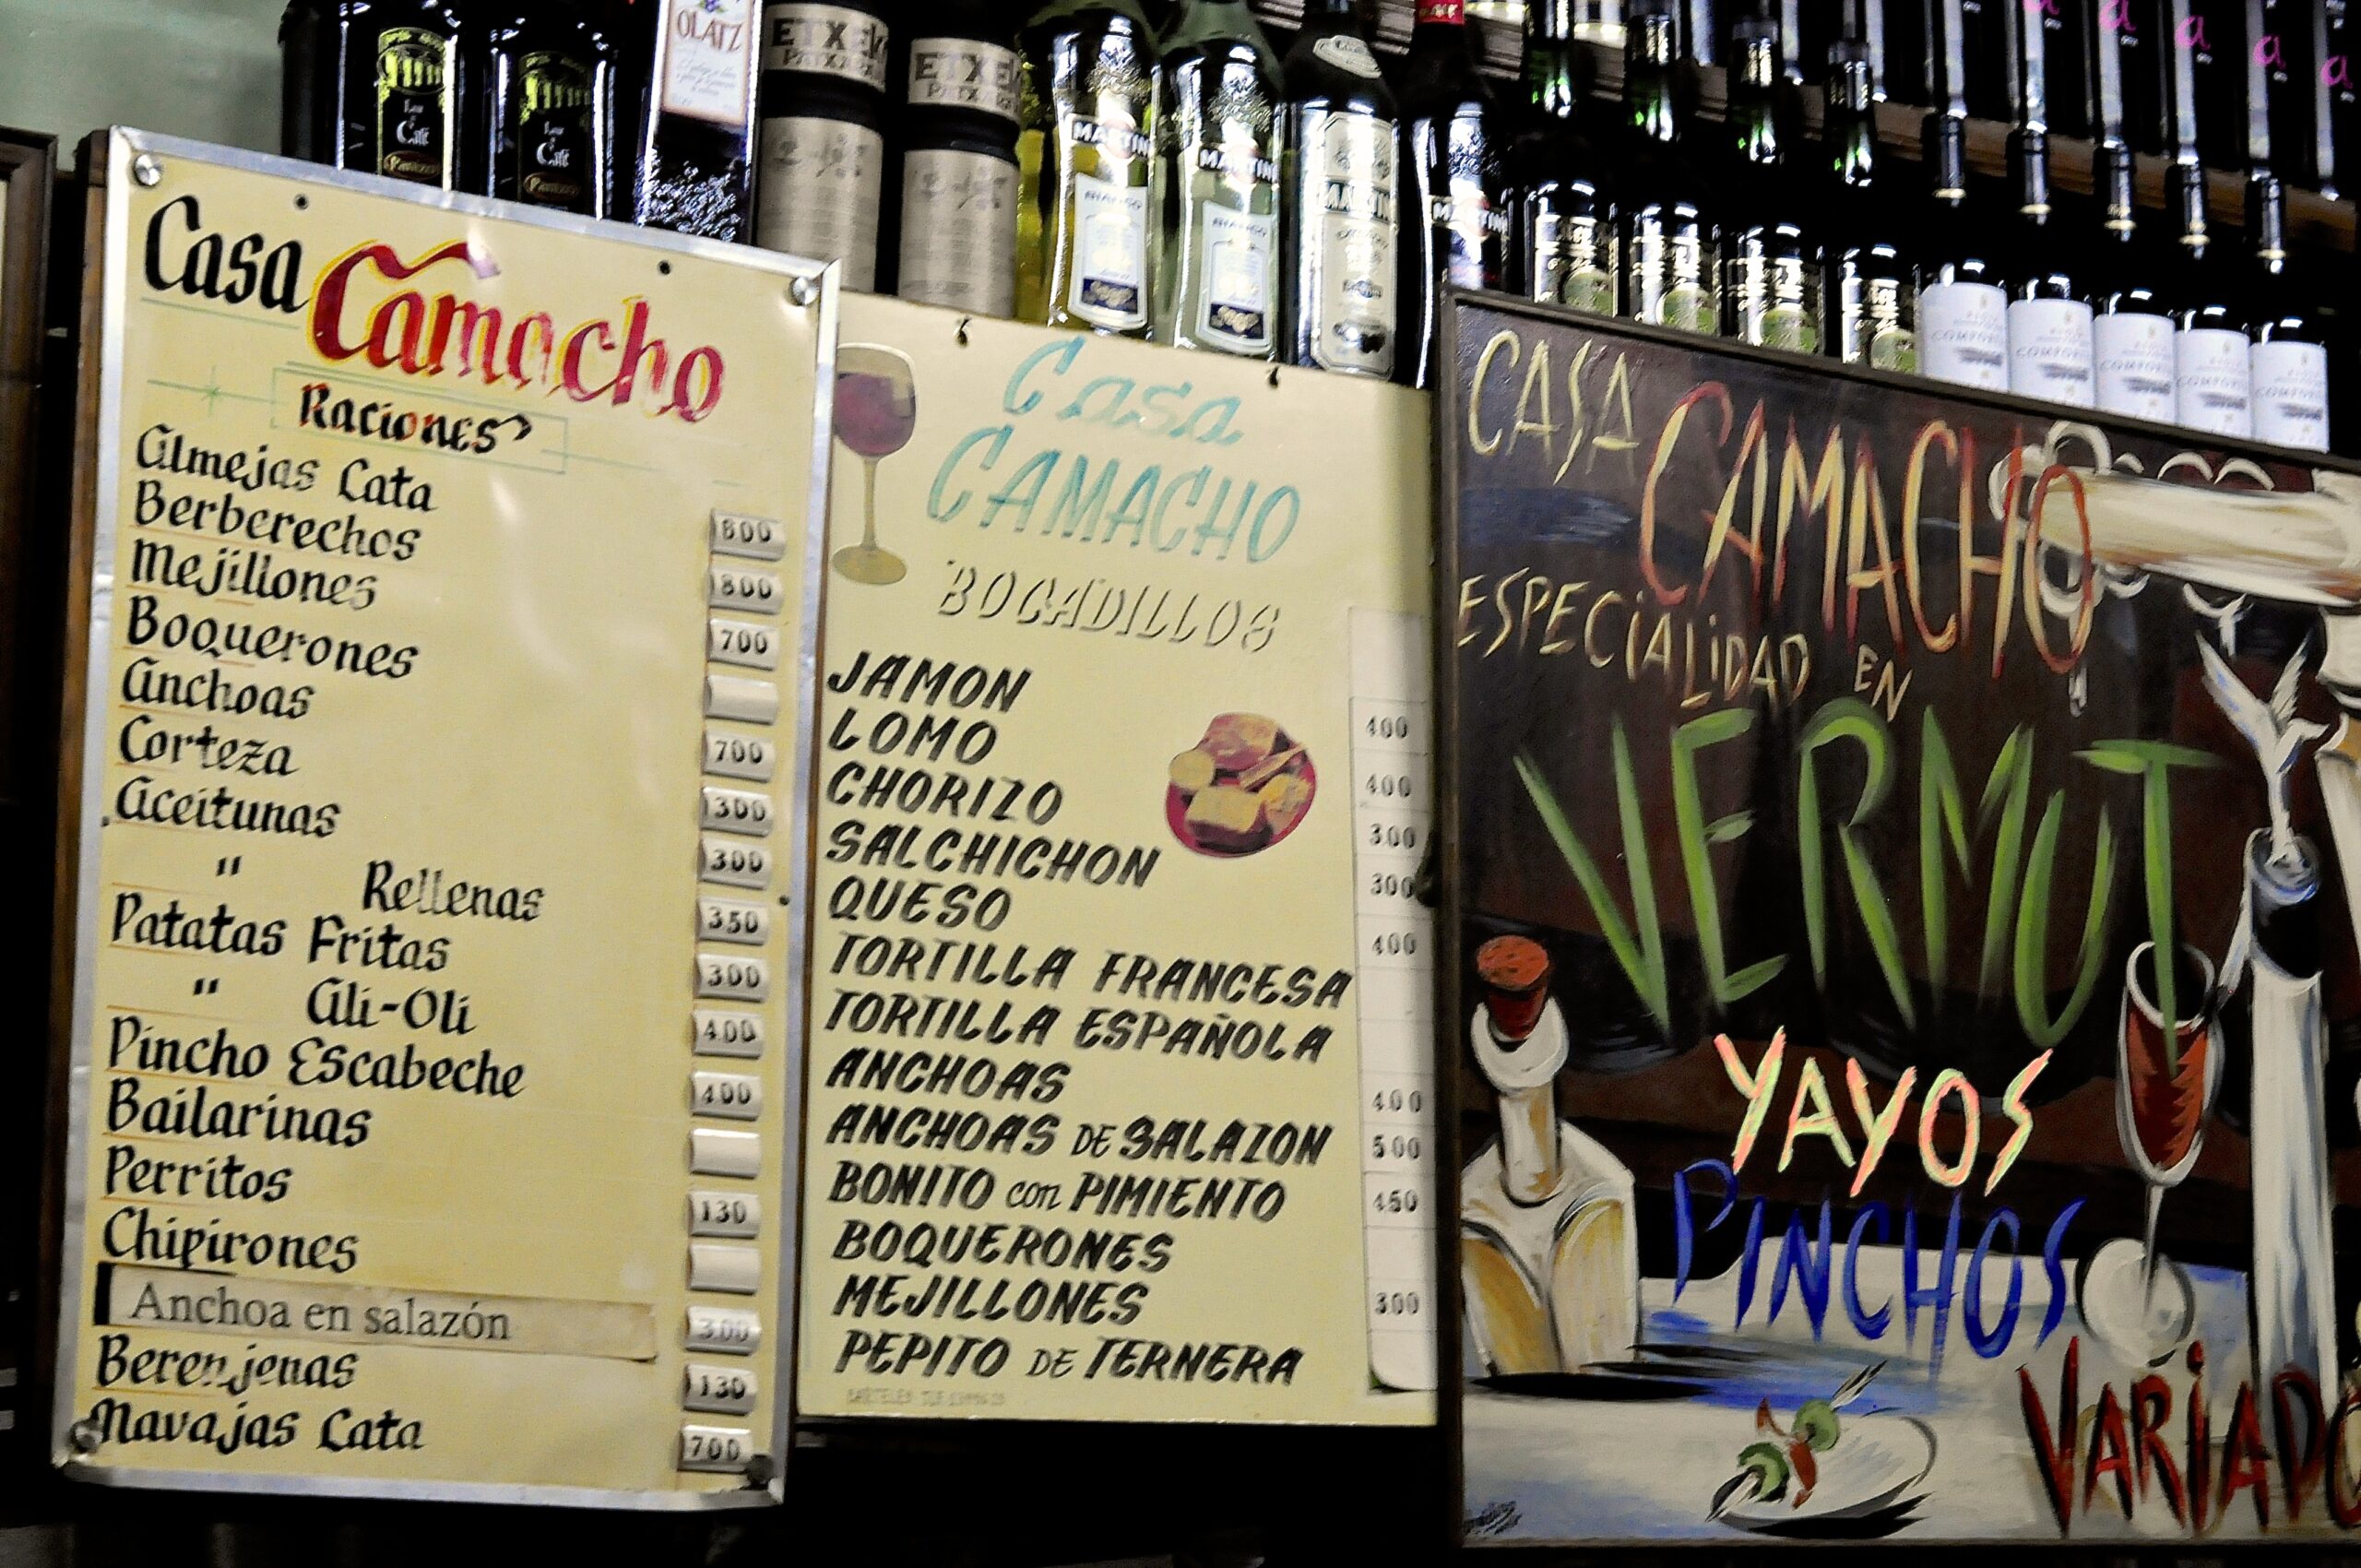 OLATZ
ETXEK
PATXAR
ETXEK
PATXAR
Café
Café
MARTINI
MARTINI
MARTINI
MARTINI
a
a
a
a
a
Casa Camacho
Raciones
Almejas Lata 800
Berberechos 800
Mejillones 700
Boquerones
Anchoas 700
Corteza 1300
Aceitunas 300
" Rellenas 350
Patatas Fritas 300
" Ali-Oli 400
Pincho Escabeche 400
Bailarinas
Perritos 130
Chipirones
Anchoa en salazón 300
Berenjenas 130
Navajas Lata 700
Casa
CAMACHO
BOCADILLOS
JAMON 400
LOMO 400
CHORIZO 300
SALCHICHON 300
QUESO 400
TORTILLA FRANCESA
TORTILLA ESPAÑOLA
ANCHOAS 400
ANCHOAS DE SALAZON 500
BONITO con PIMIENTO 450
BOQUERONES
MEJILLONES 300
PEPITO DE TERNERA
CASA CAMACHO
ESPECiALiDAD EN
VERMUT
YAYOS
PINCHOS
VARiADO